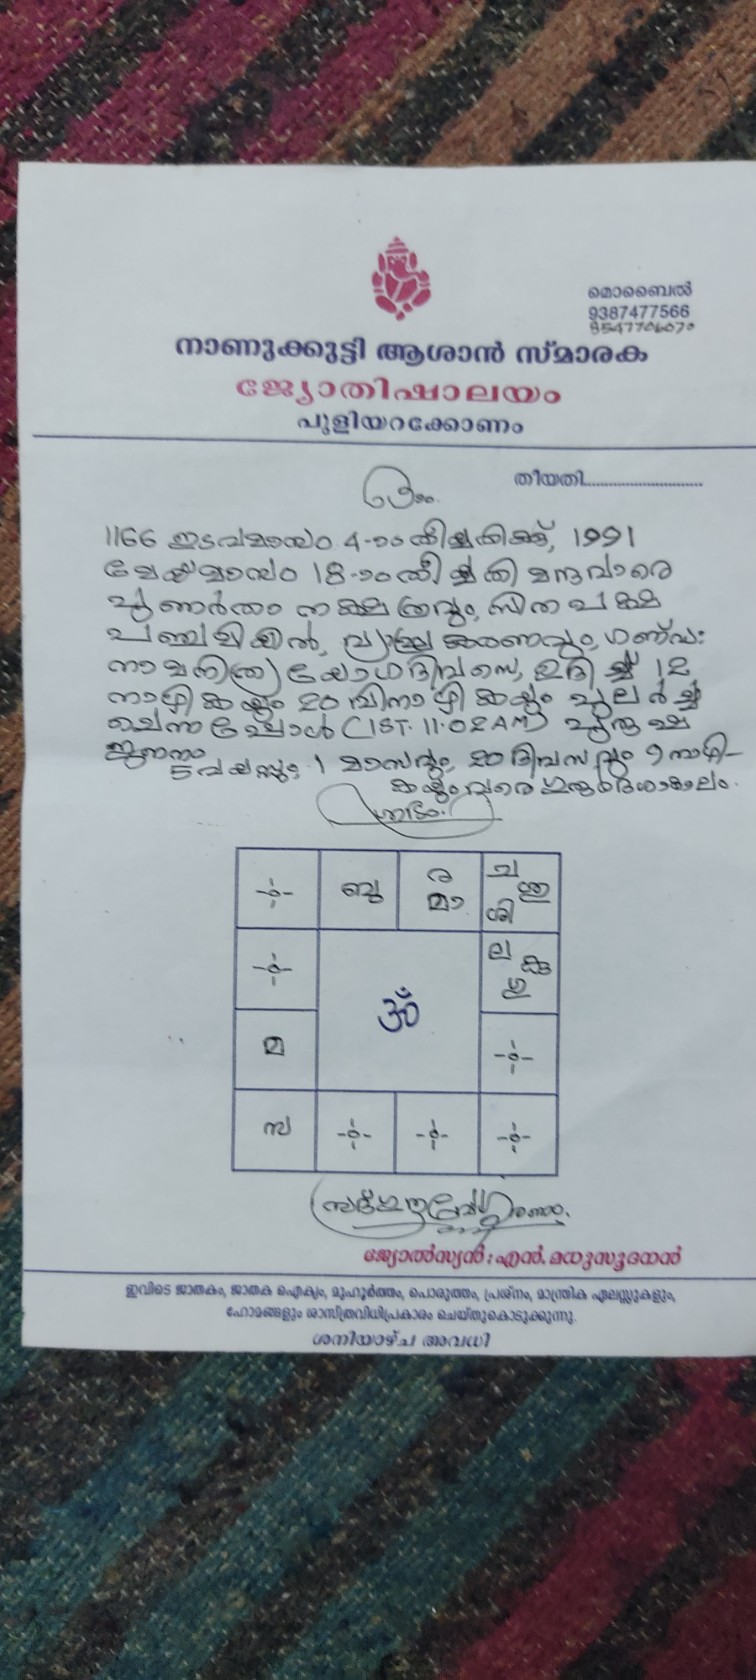 മൊബൈൽ
9387477566
നാണുക്കുട്ടി ആശാൻ സ്മാരക
ജ്യോതിഷാലയം
പുളിയറക്കോണം
തീയതി............................
1166 ഇടവമാസം 4-ാം തീയ്യതിക്ക്, 1991
മേയ്മാസം 18-ാം തീയ്യതി മന്ദവാരെ
പുണർതം നക്ഷത്രവും, സിതപക്ഷ
പഞ്ചമിയിൽ, കരണവും, ഗണ്ഡഃ
നാമനിത്യയോഗദിവസെ, ഉദിച്ച് 12
നാഴികയും 20 വിനാഴികയും പുലർച്ച
ചെന്നപ്പോൾ (IST. 11.02 AM) പുരുഷ
ജനനം
5 വയസ്സും, 1 മാസവും, 20 ദിവസവും 9 നാഴി-
കയുംവരെ ഗുരുർദശാകാലം.
ബു
ര
മാ
ച
ശി
ല
കു
ഗു
ॐ
മ
സ
ജ്യോൽസ്യൻ : എൻ. മധുസൂദനൻ
ഇവിടെ ജാതകം, ജാതക ഐക്യം, മുഹൂർത്തം, പൊരുത്തം, പ്രശ്നം, മാന്ത്രിക ഏലസ്സുകളും,
ഹോമങ്ങളും ശാസ്ത്രവിധിപ്രകാരം ചെയ്തുകൊടുക്കുന്നു.
ശനിയാഴ്ച അവധി